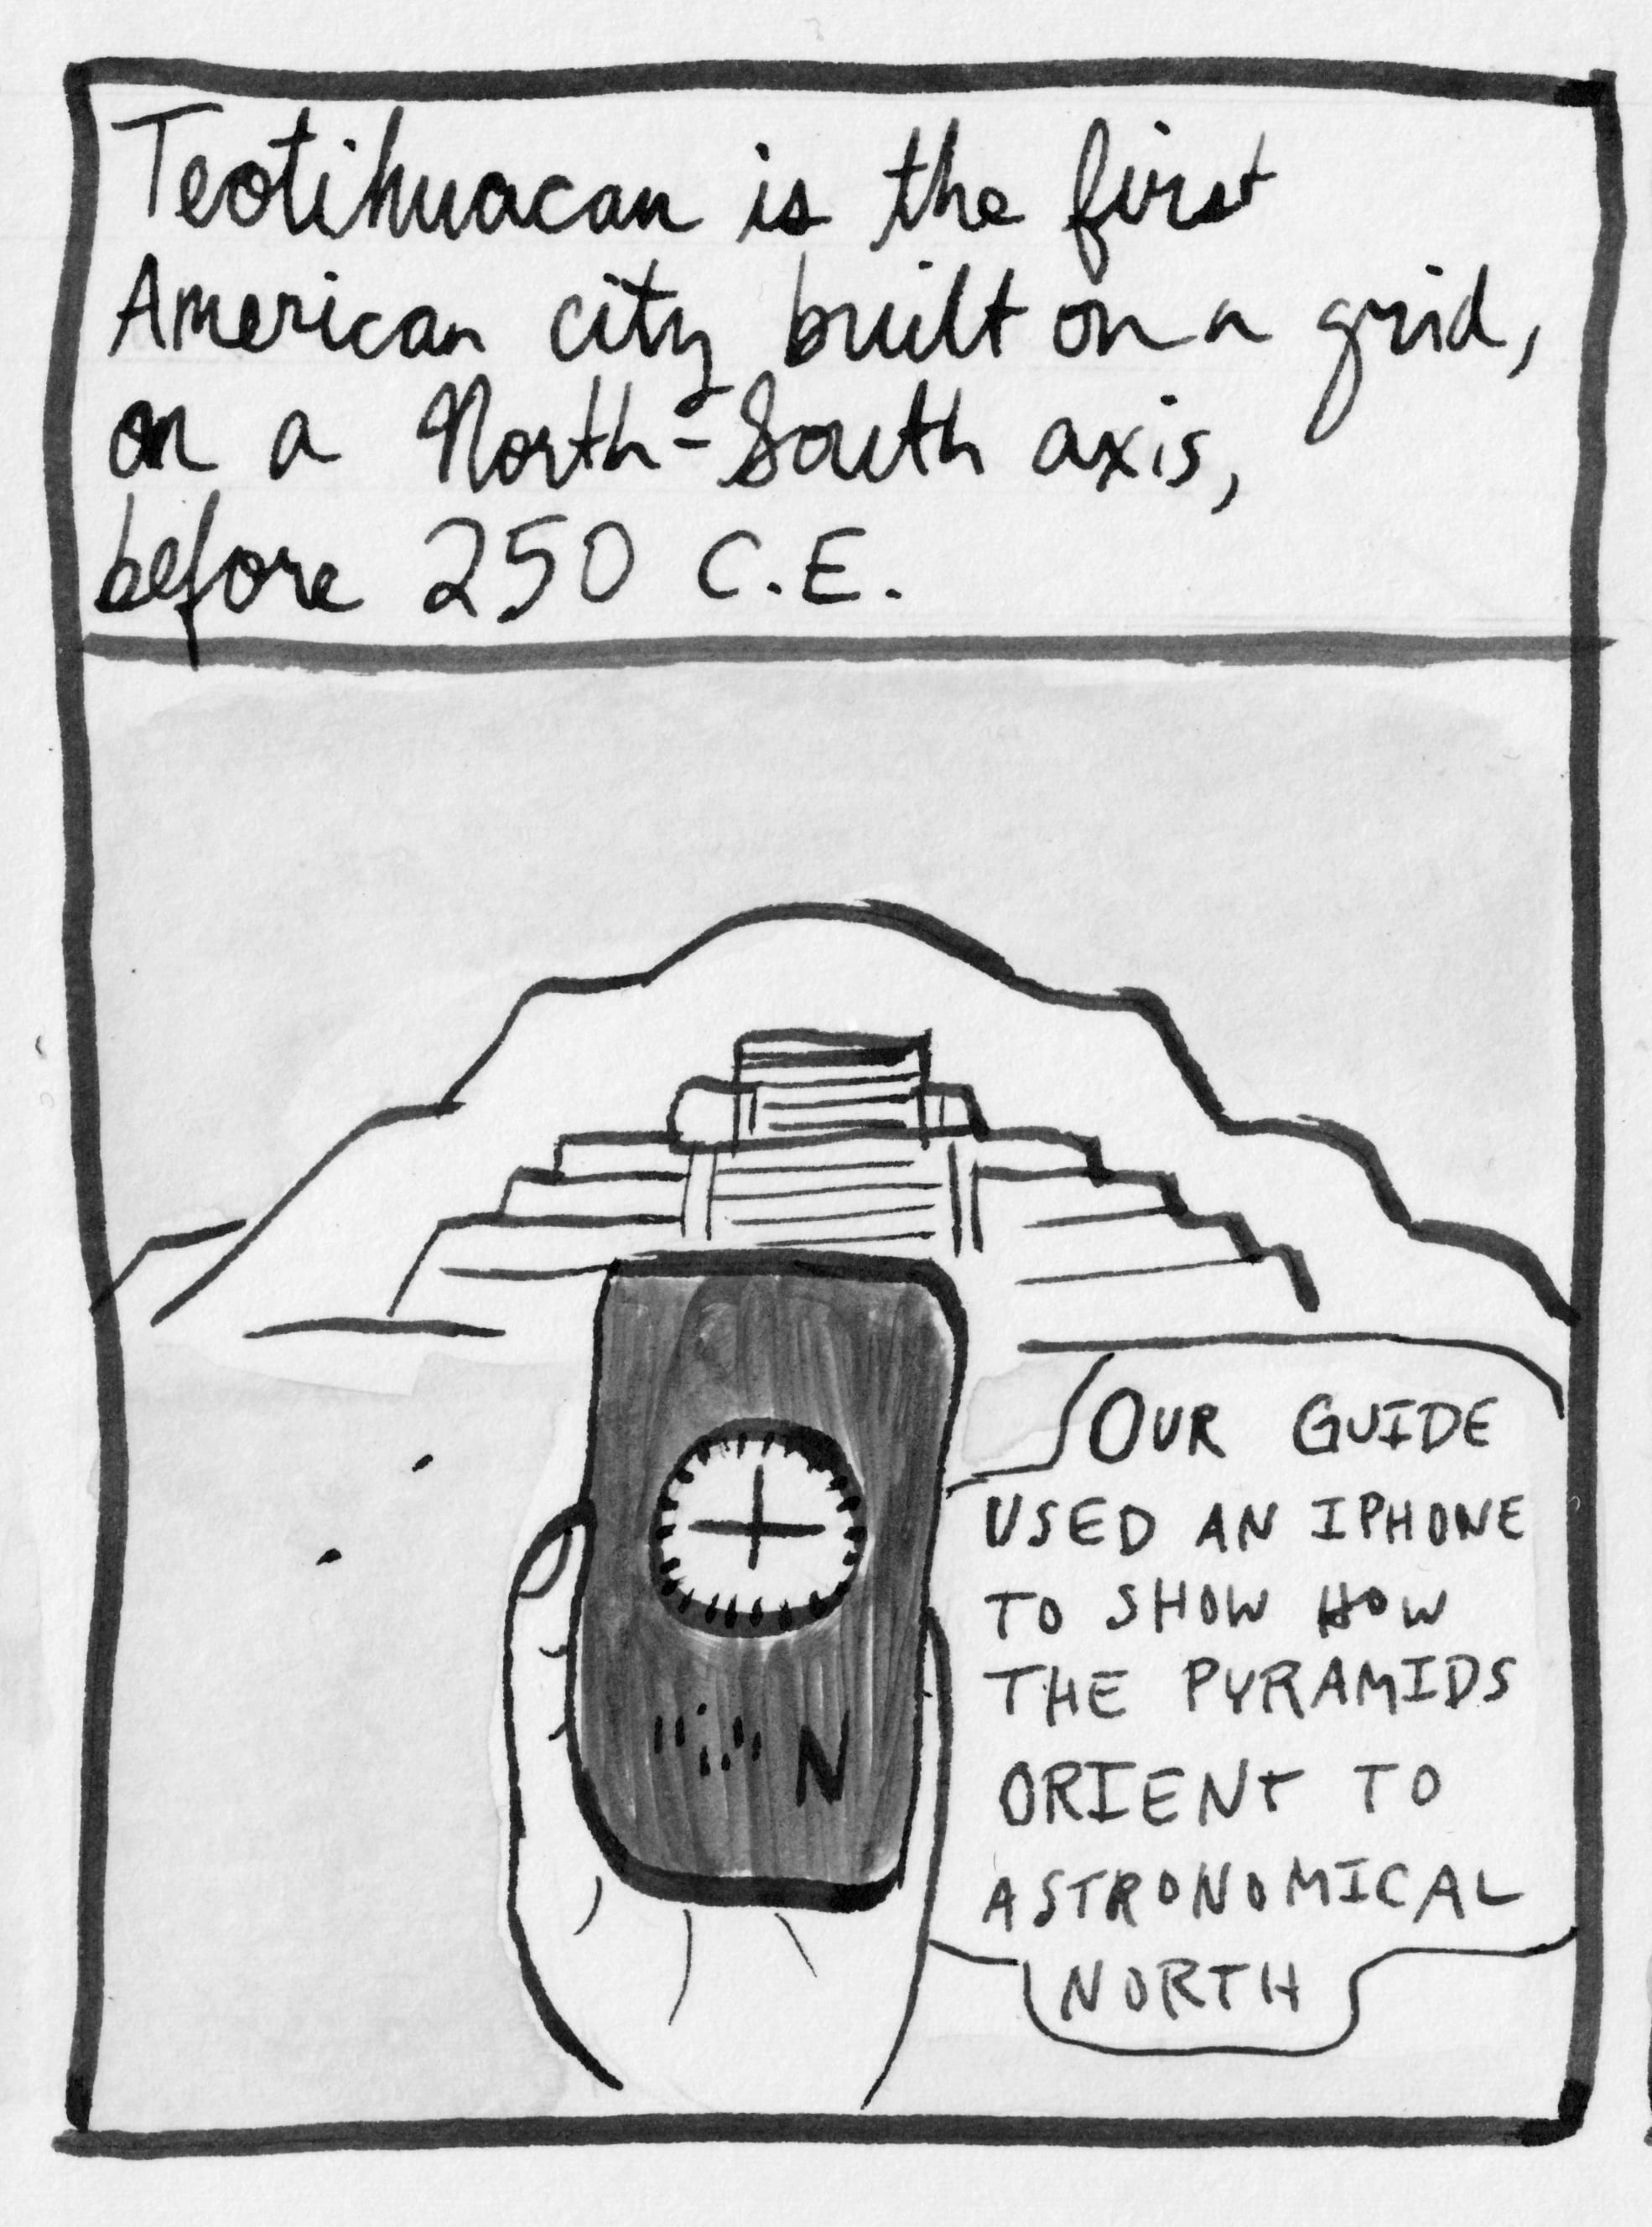 Teotihuacan is the first
American city built on a grid,
on a North-South axis,
before 250 C.E.
OUR GUIDE
USED AN IPHONE
TO SHOW HOW
THE PYRAMIDS
ORIENT TO
ASTRONOMICAL
NORTH
N